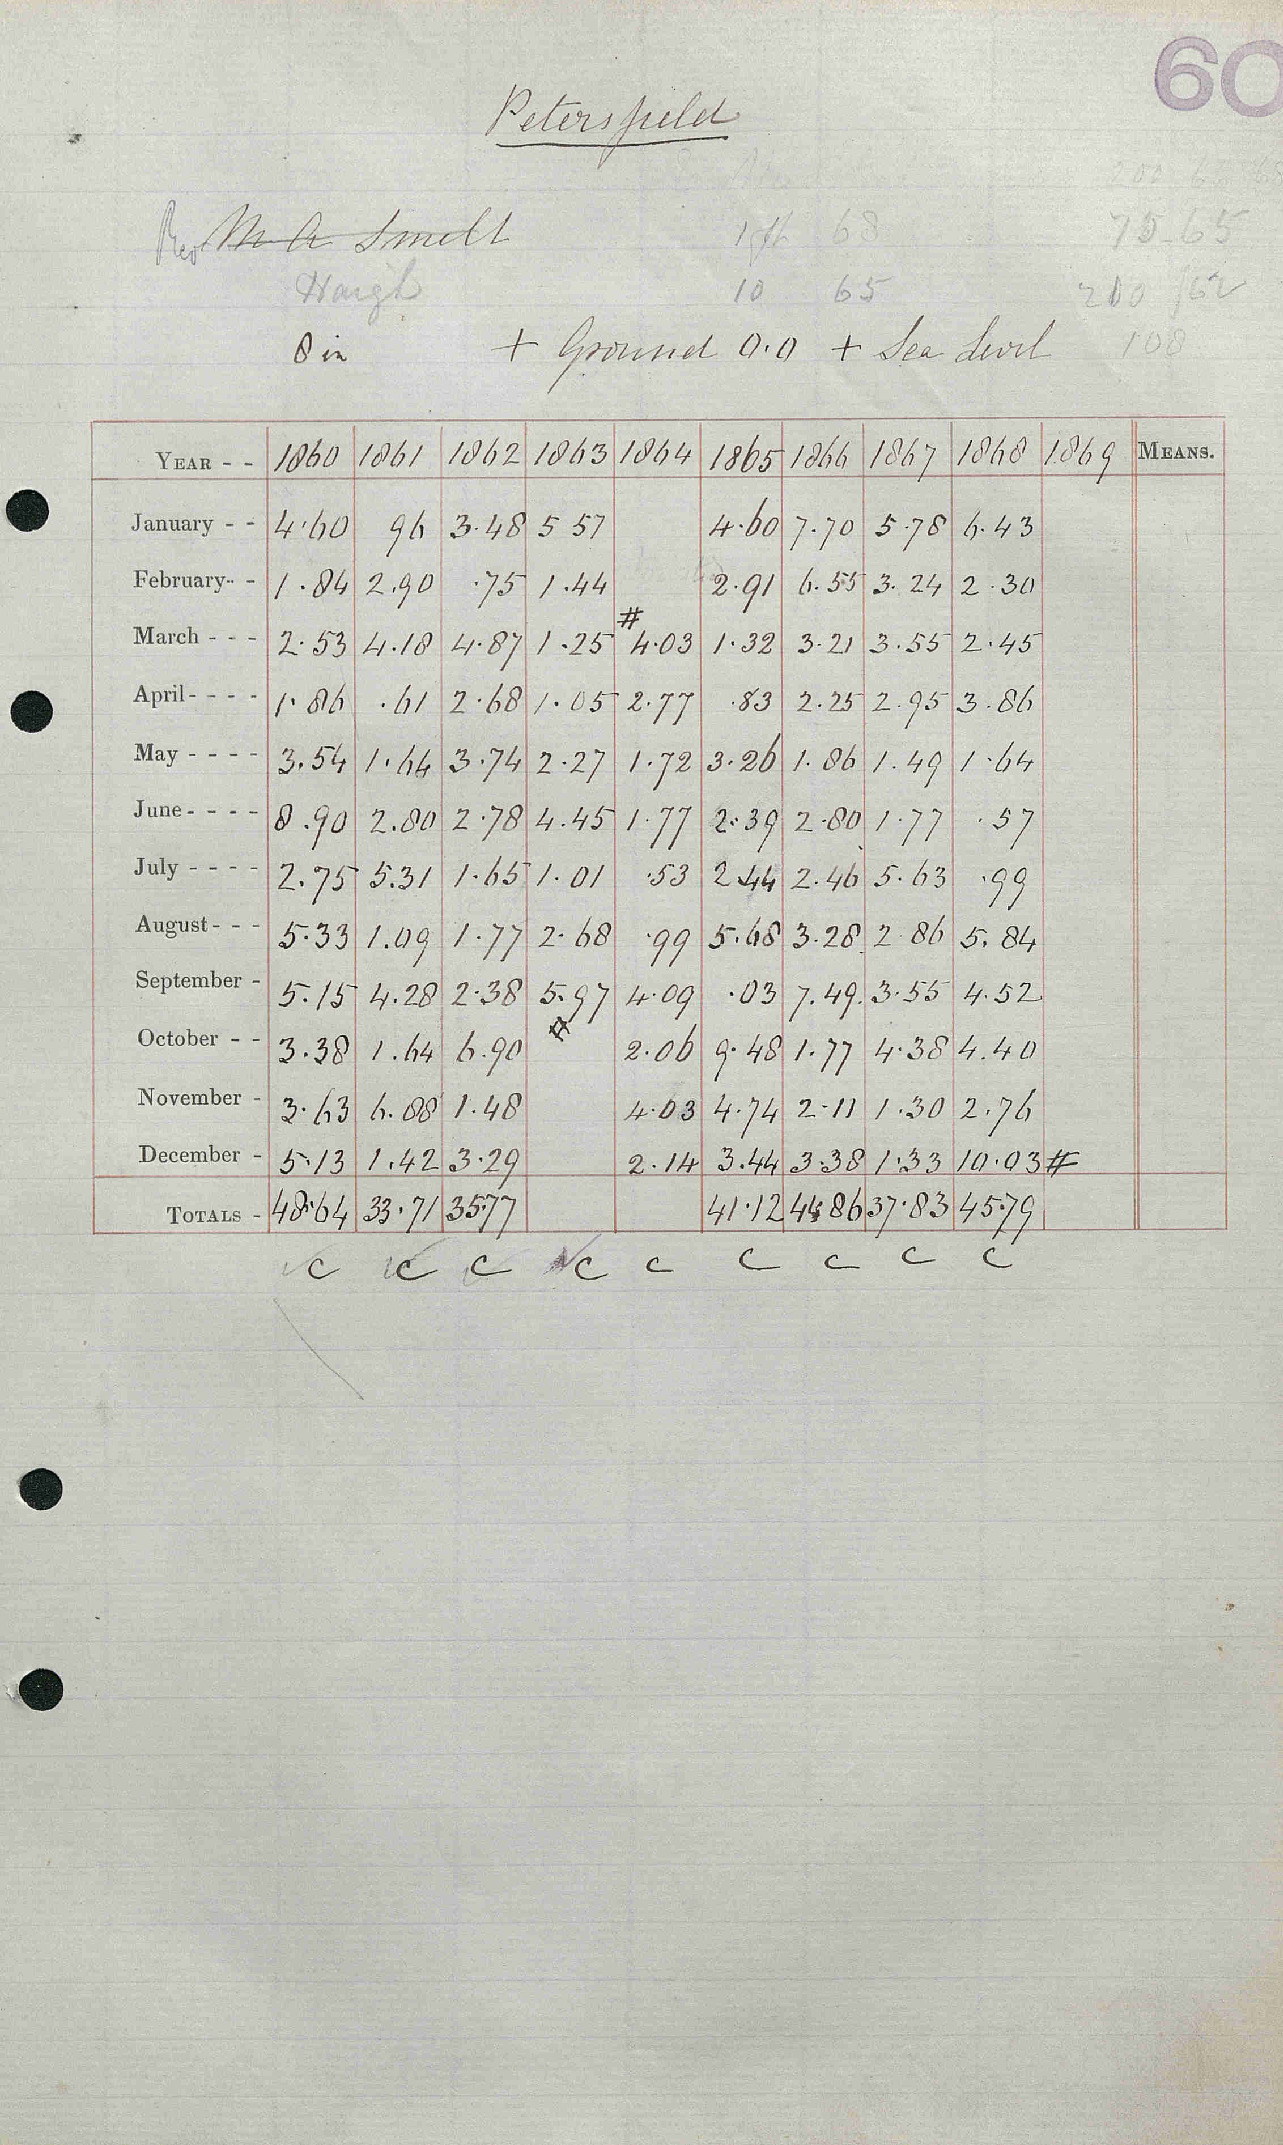 60
Petersfield
Rev M A Smelt 68 75.65
Haigh 10 65 200 /62
8 in + Ground 0.0 + Sea Level 108
YEAR - - 1860 1861 1862 1863 1864 1865 1866 1867 1868 1869 MEANS.
January - - 4.60 96 3.48 5 57 4.60 7.70 5.78 6.43
February - - 1.84 2.90 .75 1.44 2.91 6.55 3.24 2.30
March - - - 2.53 4.18 4.87 1.25 # 4.03 1.32 3.21 3.55 2.45
April - - - - 1.86 .61 2.68 1.05 2.77 .83 2.25 2.95 3.86
May - - - - 3.54 1.64 3.74 2.27 1.72 3.26 1.86 1.49 1.64
June - - - - 8.90 2.80 2.78 4.45 1.77 2.39 2.80 1.77 .57
July - - - - 2.75 5.31 1.65 1.01 .53 2.44 2.46 5.63 .99
August - - - 5.33 1.09 1.77 2.68 .99 5.68 3.28 2.86 5.84
September - 5.15 4.28 2.38 5.97 4.09 .03 7.49 3.55 4.52
October - - 3.38 1.64 6.90 # 2.06 9.48 1.77 4.38 4.40
November - 3.63 6.88 1.48 4.03 4.74 2.11 1.30 2.76
December - 5.13 1.42 3.29 2.14 3.44 3.38 1.33 10.03 #
TOTALS - 48.64 33.71 35.77 41.12 44.86 37.83 45.79
c c c c c c c c c